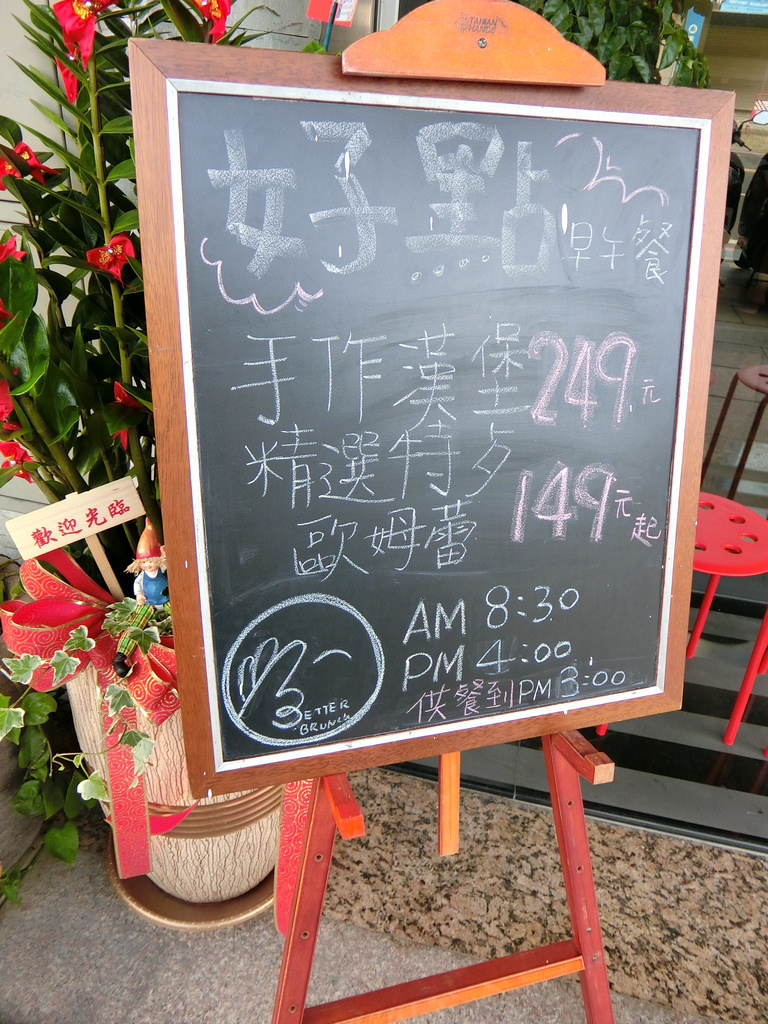 TAIWAN HANDS
好點 早午餐
手作漢堡 249元
精選特歺
歐姆蕾 149元起
AM 8:30
PM 4:00
供餐到PM 3:00
BETTER
BRUNCH
歡迎光臨